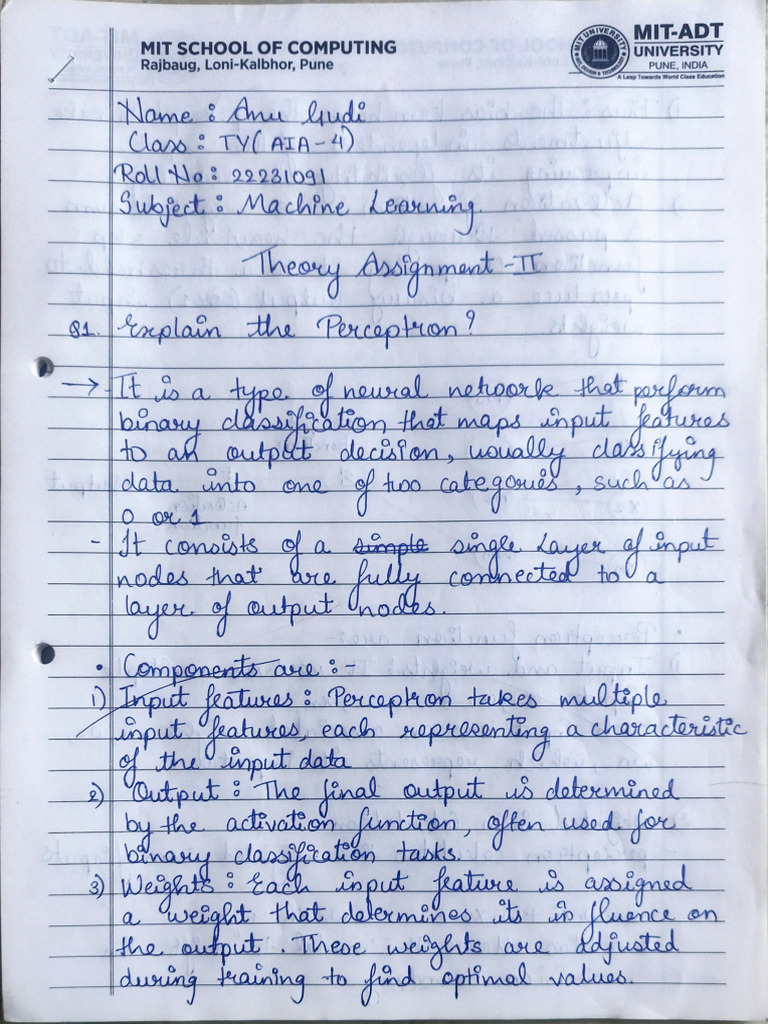 MIT SCHOOL OF COMPUTING
Rajbaug, Loni-Kalbhor, Pune
MIT-ADT
UNIVERSITY
PUNE, INDIA
A Leap Towards World Class Education
Name : Anu Gudi
Class : TY( AIA-4)
Roll No : 22231091
Subject : Machine Learning.
Theory Assignment -II
Q1. Explain the Perceptron?
→ It is a type of neural network that perform
binary classification that maps input features
to an output decision, usually classifying
data into one of two categories, such as
0 or 1
- It consists of a simple single layer of input
nodes that are fully connected to a
layer of output nodes.
• Components are :-
1) Input features : Perceptron takes multiple
input features, each representing a characteristic
of the input data
2) Output : The final output is determined
by the activation function, often used for
binary classification tasks.
3) Weights : Each input feature is assigned
a weight that determines its influence on
the output. These weights are adjusted
during training to find optimal values.